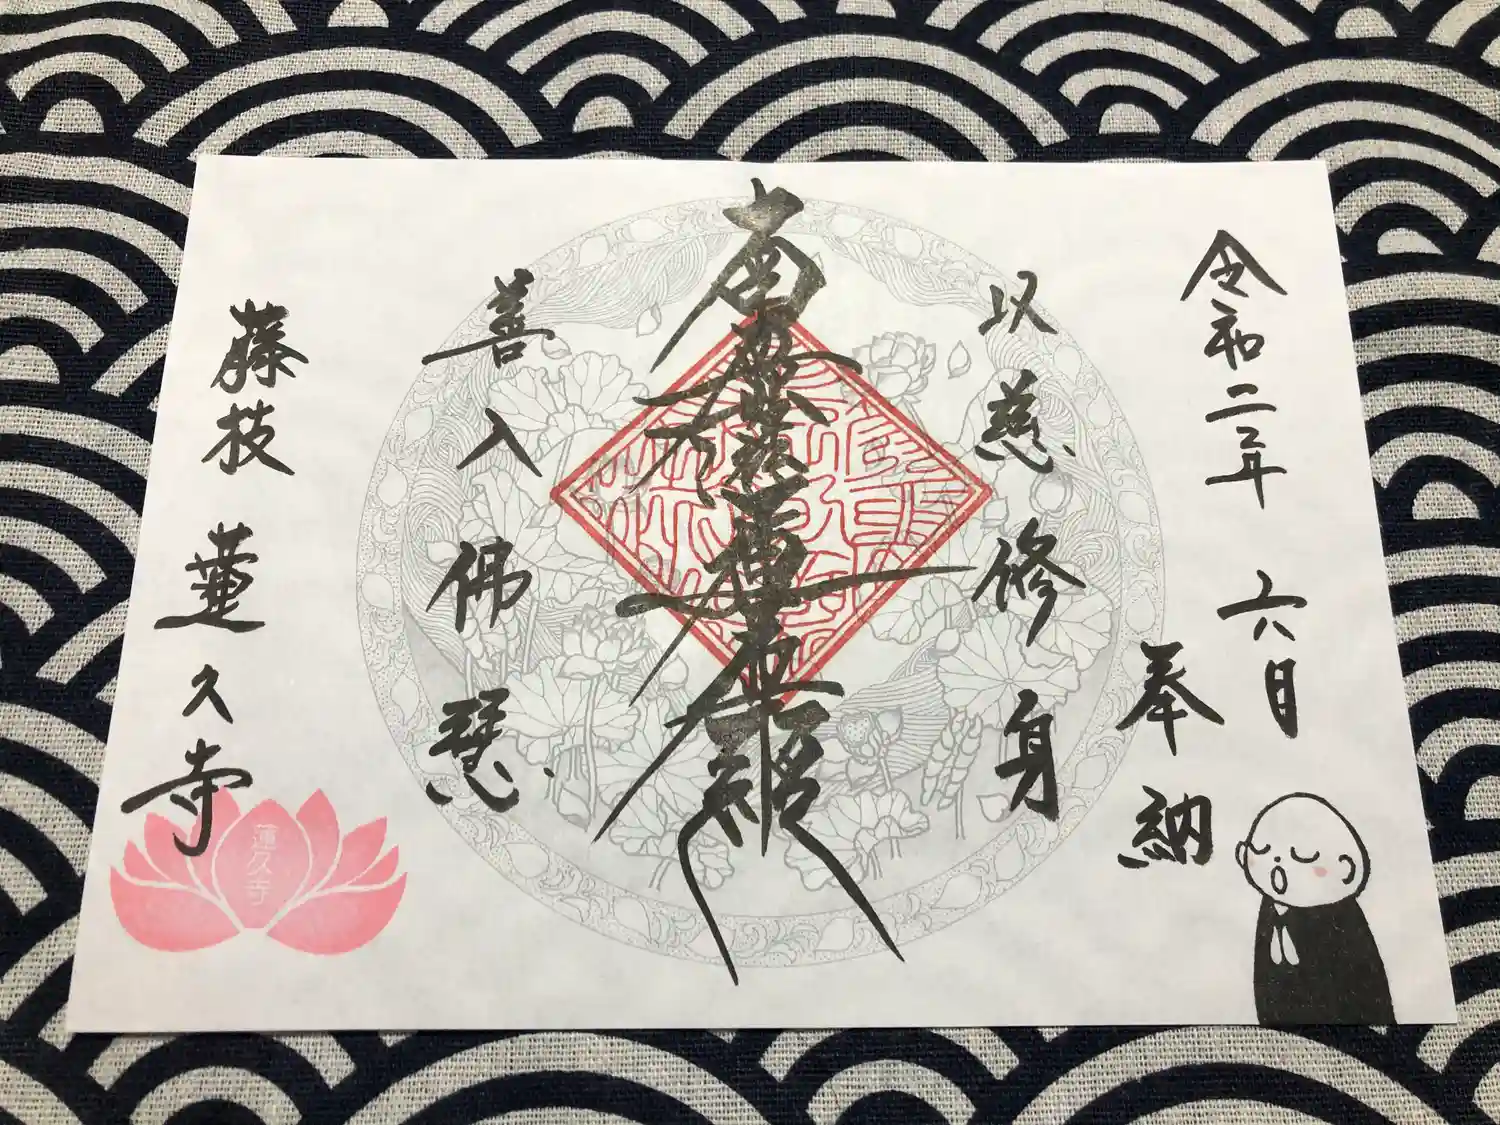 令和二年 六月
奉納
以慈修身
南無妙法蓮華経
善入佛慧
藤枝 蓮久寺
蓮久寺